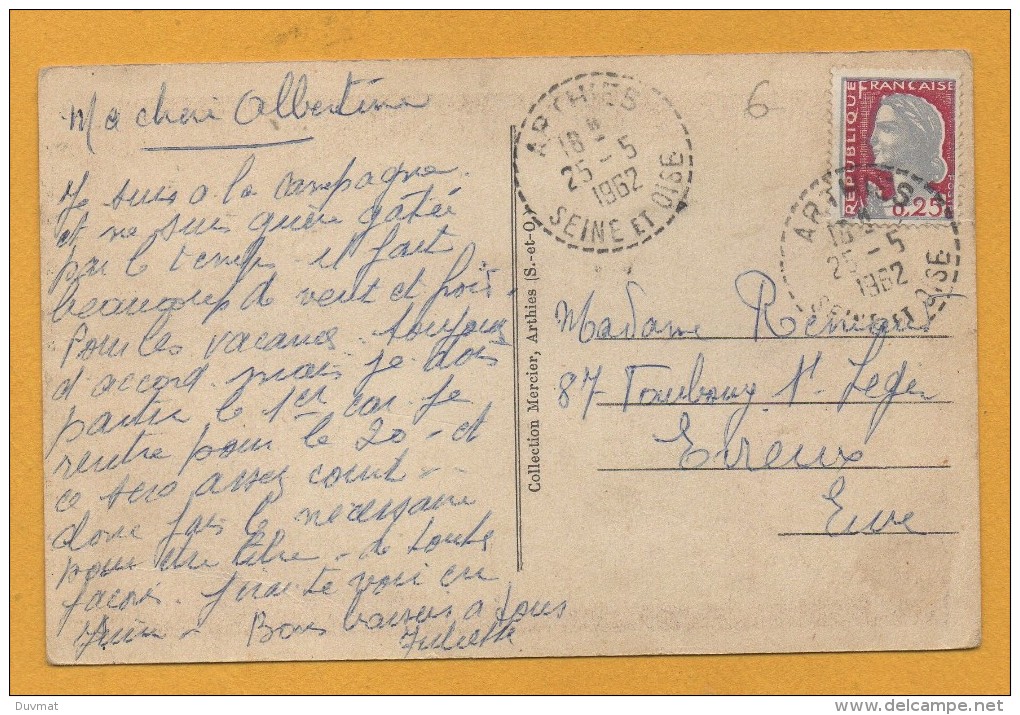 Ma cheri Albertine
Je suis a la campagne
et ne suis guère gatée
par le temps il fait
beaucoup de vent et froid.
Pour les vacances toujours
d'accord mais je dois
partir le 1er car je
rentre pour le 20 - et
ce sera assez court -
donc fais le necessaire
pour être - de toute
facons. J'irai te voir en
Juin - Bons baisers a tous
Juliette
Collection Mercier, Arthies (S.-et-O.)
ARTHIES
18 H
25 - 5
1962
SEINE ET OISE
6
RÉPUBLIQUE FRANÇAISE
0,25
ARTHIES
18 H
25 - 5
1962
SEINE ET OISE
Madame Remoue
87 Faubourg St Leger
Evreux
Eure
Duvmat
delcampe.net